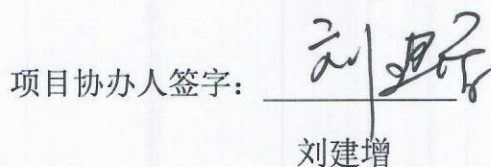 项目协办人签字：刘建增
刘建增